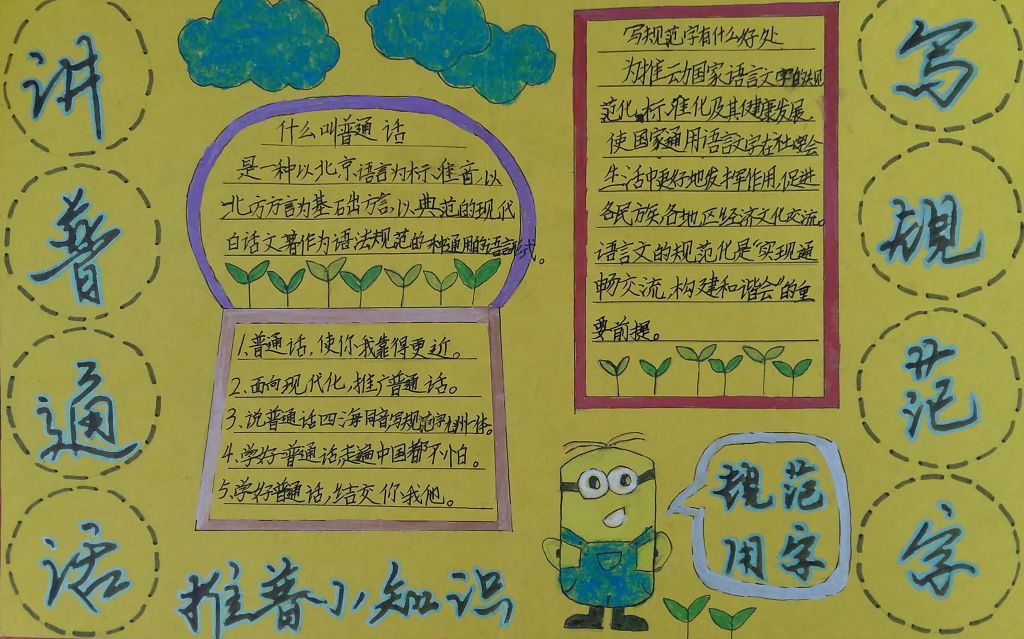 讲
普
通
话
什么叫普通话
是一种以北京语言为标准音,以
北方方言为基石出方言,以典范的现代
白话文著作为语法规范的一种通用的语言形式。
1.普通话,使你我靠得更近。
2.面向现代化,推广普通话。
3.说普通话四海同音写规范字九州一体。
4.学好普通话,走遍中国都不怕。
5.学好普通话,结交你我他。
推普小知识
写规范字有什么好处
为推动国家语言文字的规
范化,标准化及其健康发展,
使国家通用语言文字在社会
生活中更好地发挥作用,促进
各民族、各地区经济文化交流。
语言文的规范化是“实现通
畅交流,构建和谐会”的重
要前提。
规范
用字
写
规
范
字